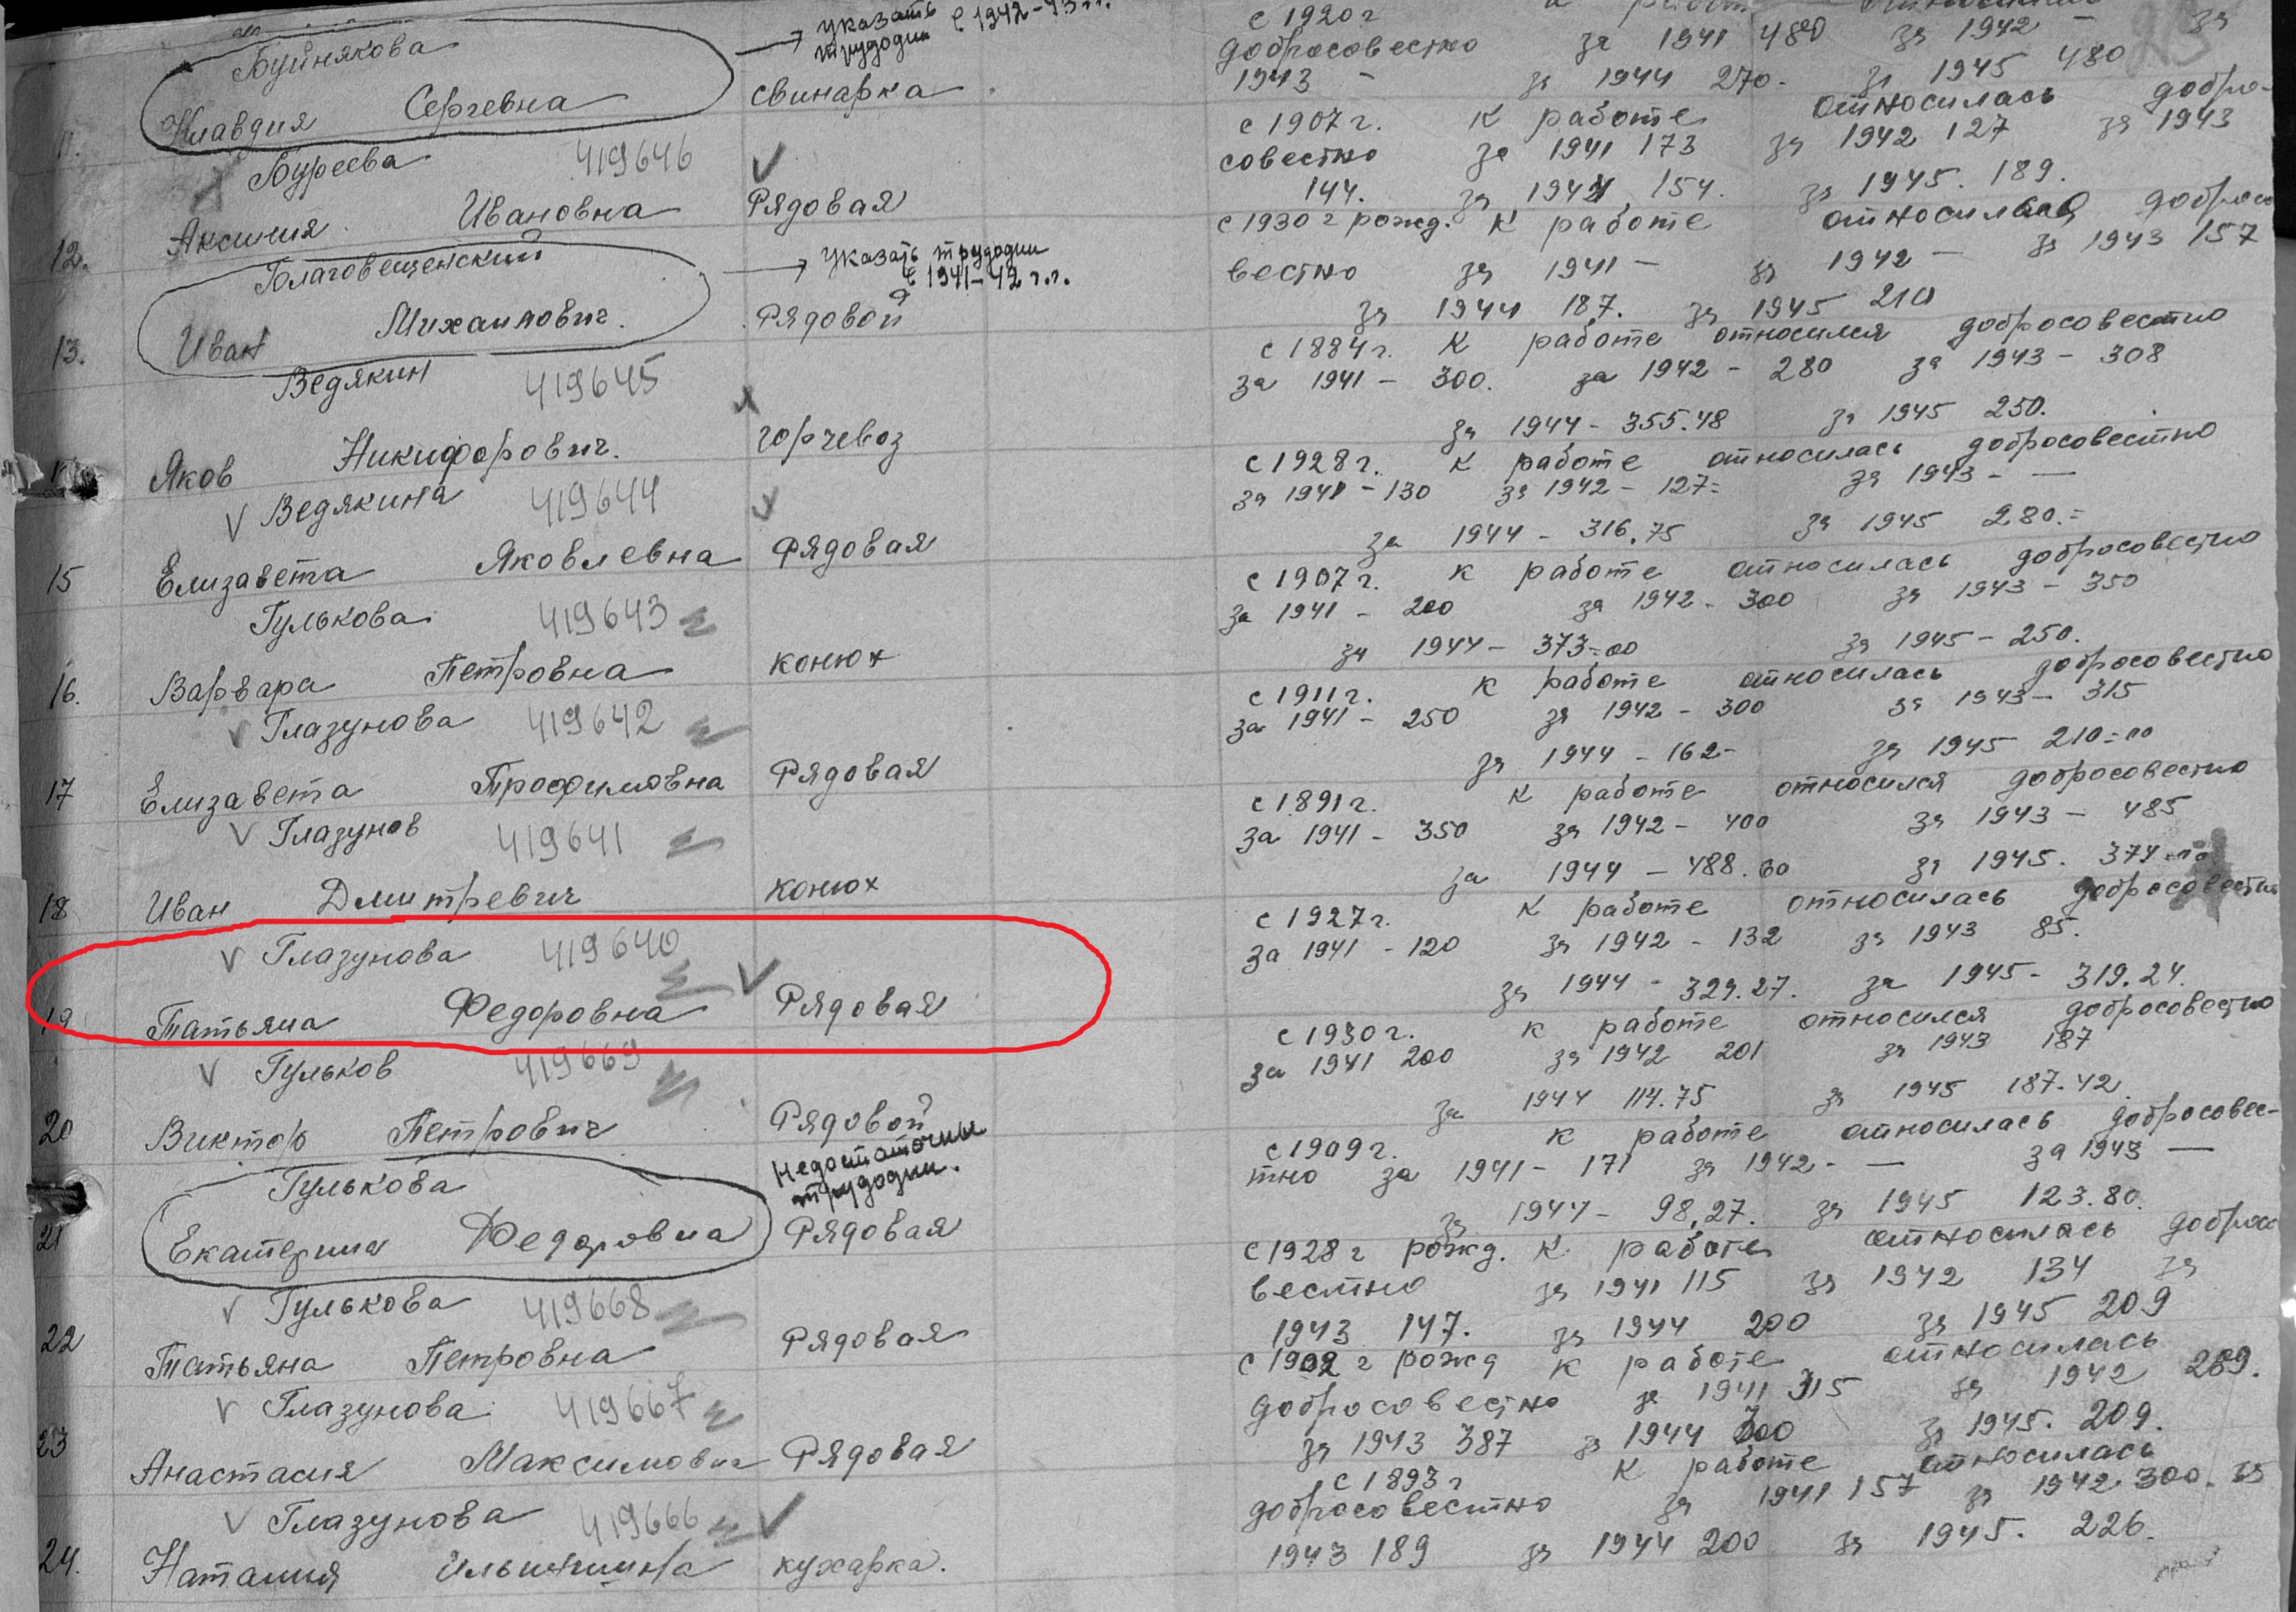 Буйнякова → указать трудодни с 1942-43 г.г.
11. Клавдия Сергевна свинарка
с 1920 г
добросовестно за 1941 480 за 1942 – за
1943 – за 1944 270- за 1945 480
Буреева 419646
12. Аксиния Ивановна Рядовая
с 1907 г. к работе относилась добро-
совестно за 1941 173 за 1942 127 за 1943
144. за 1944 154. за 1945. 189.
Благовещенский → указать трудодни с 1941-42 г.г.
13. Иван Михаилович. Рядовой
с 1930 г рожд. к работе относился добросо
вестно за 1941 – за 1942 – за 1943 157
за 1944 187. за 1945 210
Ведякин 419645
Яков Никифорович. горчевоз
с 1884 г. к работе относился добросовестно
за 1941 – 300. за 1942 – 280 за 1943 – 308
за 1944 – 355.48 за 1945 250.
Ведякина 419644
15 Елизавета Яковлевна Рядовая
с 1928 г. к работе относилась добросовестно
за 1941 – 130 за 1942 – 127= за 1943 - —
за 1944 – 316.75 за 1945 280.=
Гулькова 419643
16. Варвара Петровна конюх
с 1907 г. к работе относилась добросовестно
за 1941 – 200 за 1942 – 300 за 1943 – 350
за 1944 – 373=00 за 1945 – 250.
Глазунова 419642
17 Елизавета Трофимовна Рядовая
с 1911 г. к работе относилась добросовестно
за 1941 – 250 за 1942 – 300 за 1943 – 315
за 1944 – 162- за 1945 210=00
Глазунов 419641
18 Иван Дмитревич конюх
с 1891 г. к работе относился добросовестно
за 1941 – 350 за 1942 – 400 за 1943 – 485
за 1944 – 488.60 за 1945. 374=00
Глазунова 419640
19 Татьяна Федоровна Рядовая
с 1927 г. к работе относилась добросовестно
за 1941 – 120 за 1942 – 132 за 1943 85.
за 1944 – 329.27. за 1945 – 319.24.
Гульков 419669
20 Виктор Петрович Рядовой
с 1930 г. к работе относился добросовестно
за 1941 200 за 1942 201 за 1943 187
за 1944 114.75 за 1945 187.42.
Гулькова Недостаточны трудодни.
21 Екатерина Федоровна Рядовая
с 1909 г. к работе относилась добросовес-
тно за 1941 – 171 за 1942 - — за 1943 —
за 1944 – 98,27. за 1945 123.80.
Гулькова 419668
22 Татьяна Петровна Рядовая
с 1928 г рожд. к работе относилась добросо
вестно за 1941 115 за 1942 134 за
1943 147. за 1944 200 за 1945 209
Глазунова 419667
23 Анастасия Максимовна Рядовая
с 1902 г рожд к работе относилась
добросовестно за 1941 315 за 1942 289.
за 1943 387 за 1944 300 за 1945. 209.
Глазунова 419666
24. Наталия Ильинишна кухарка.
с 1893 г к работе относилась
добросовестно за 1941 157 за 1942 300. за
1943 189 за 1944 200 за 1945. 226.